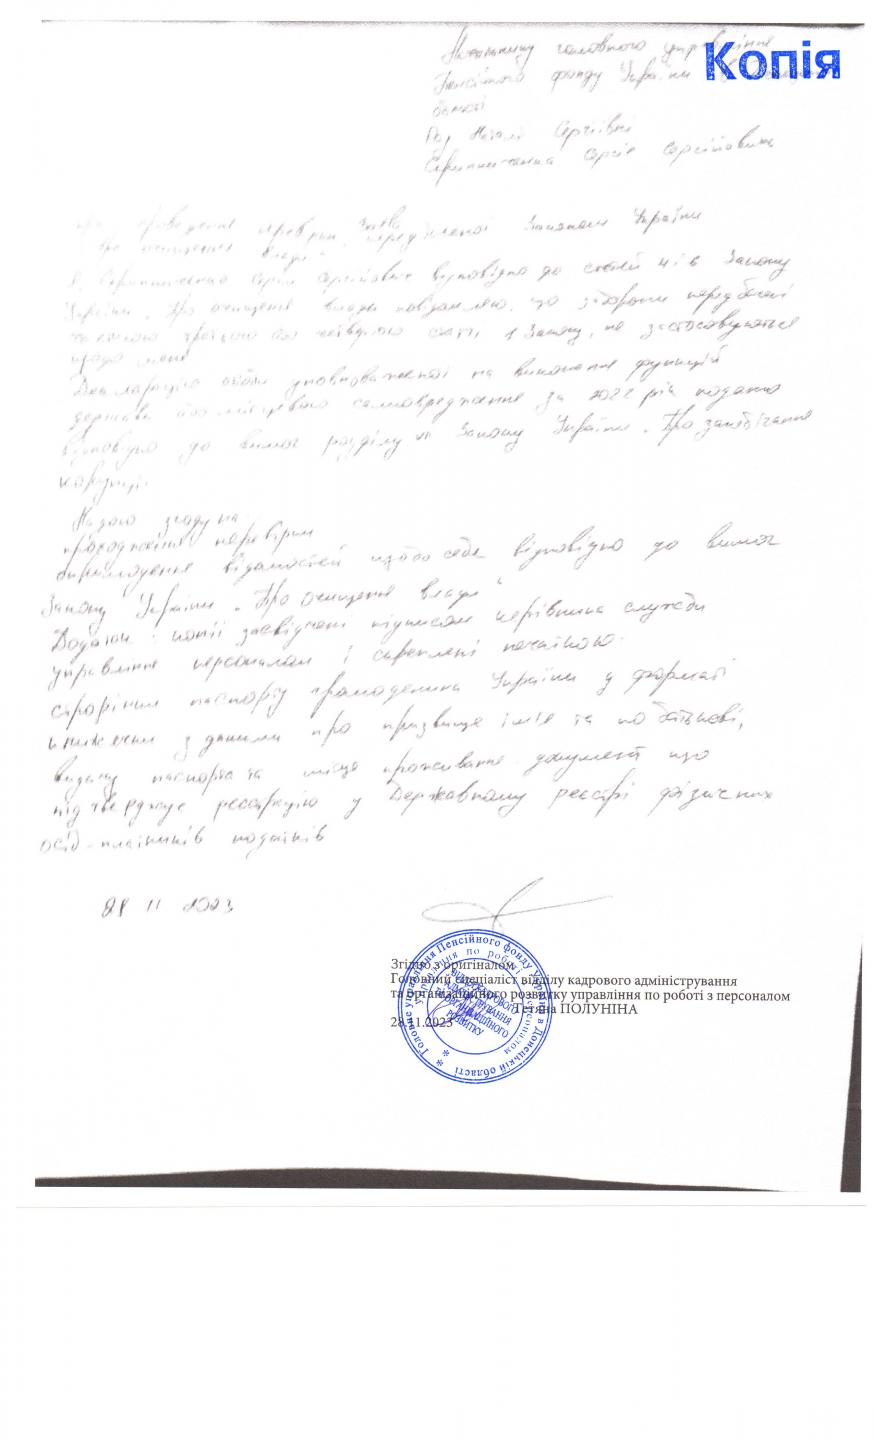 Копія
Начальнику головного управління
Пенсійного фонду України
області
Рад Наталії Сергіївні
Сергія Сергійовича
Заява
про проведення перевірки, передбаченої Законом України
"Про очищення влади"
Я, Сергій Сергійович відповідно до статей 4 і 6 Закону
України "Про очищення влади" повідомляю, що заборони передбачені
частиною третьою або четвертою статті 1 Закону, не застосовуються
щодо мене
Декларацію особи уповноваженої на виконання функцій
держави або місцевого самоврядження за 2022 рік подано
відповідно до вимог розділу VII Закону України "Про запобігання
корупції.
Надаю згоду на:
проходження перевірки
оприлюднення відомостей щодо себе відповідно до вимог
Закону України "Про очищення влади"
Додатки: копії засвідчені підписом керівника служби
управління персоналом і скреплені печаткою.
сторінки паспорту громадянина України у форматі
книжечки з даними про прізвище ім'я та по батькові,
видачу паспорта та місце проживання. документ що
підтверджує реєстрацію у Державному реєстрі фізичних
осіб-платників податків
28 11 2023
Згідно з оригіналом
Головний спеціаліст відділу кадрового адміністрування
та організаційного розвитку управління по роботі з персоналом
Тетяна ПОЛУНІНА
28.11.2023
Головне управління Пенсійного фонду України в Донецькій області *
управління по роботі з персоналом *
ВІДДІЛ КАДРОВОГО
АДМІНІСТРУВАННЯ
ТА ОРГАНІЗАЦІЙНОГО
РОЗВИТКУ